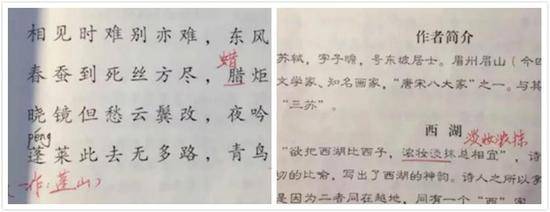 相见时难别亦难，东风
蜡
春蚕到死丝方尽，腊炬
晓镜但愁云鬓改，夜吟
péng
蓬莱此去无多路，青鸟
(一作：蓬山)
作者简介
苏轼，字子瞻，号东坡居士。眉州眉山（今四
文学家、知名画家，“唐宋八大家”之一。与其
“三苏”。
西 湖
淡妆浓抹
“欲把西湖比西子，浓妆淡抹总相宜”，诗
切的比喻，写出了西湖的神韵。诗人之所以拿
是因为二者同在越地，同有一个“西”